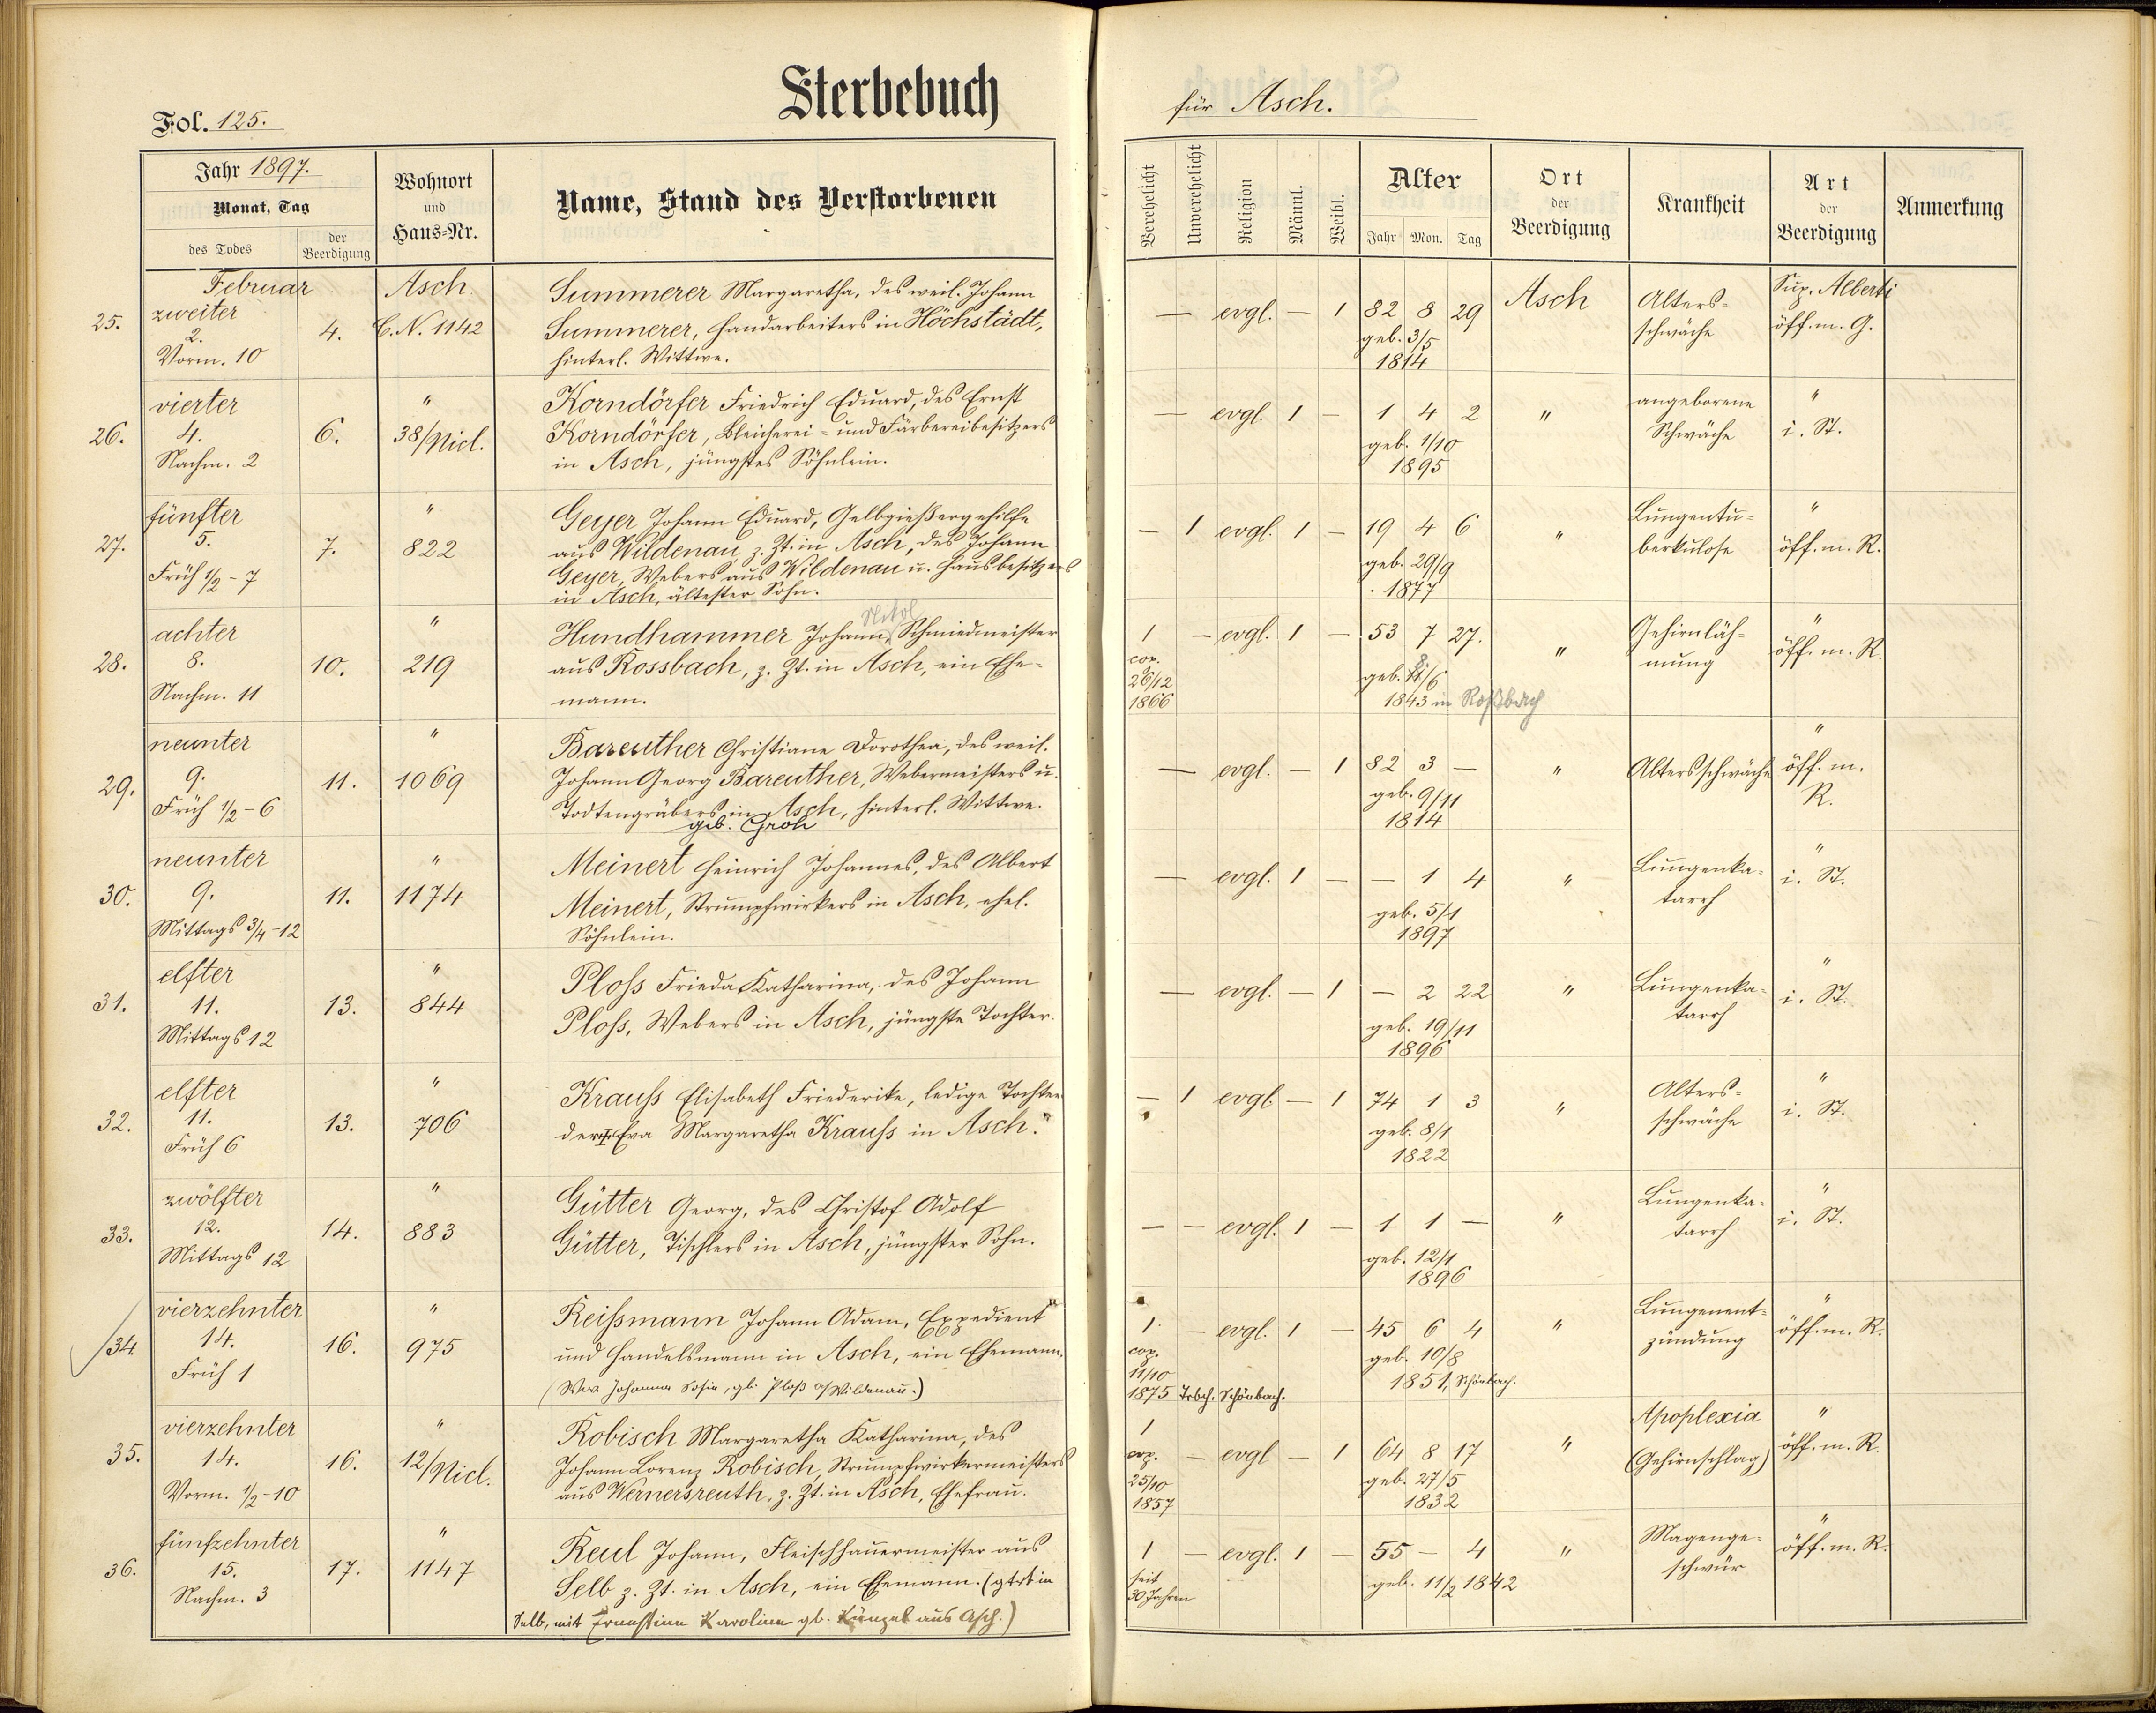 Sterbebuch
für Asch.
Fol. 125.
Jahr 1897.
Monat, Tag
des Todes
der Beerdigung
Wohnort
und
Haus-Nr.
Name, Stand des Verstorbenen
Verehelicht
Unverehelicht
Religion
Männl.
Weibl.
Alter
Jahr Mon. Tag
Ort
der
Beerdigung
Krankheit
Art
der
Beerdigung
Anmerkung
25.
Februar
zweiter
2.
Vorm. 10
4.
Asch.
C.N. 1142
Summerer Margaretha, des weil. Johann
Summerer, Handarbeiters in Höchstädt,
hinterl. Wittwe.
— evgl. — 1 82 8 29
geb. 3/5
1814
Asch
Alters-
schwäche
Sup. Alberti
öff. m. G.
26.
vierter
4.
Nachm. 2
6.
"
38/Nicl.
Korndörfer Friedrich Eduard, des Ernst
Korndörfer, Bleicherei- und Färbereibesitzers
in Asch, jüngstes Söhnlein.
— evgl. 1 — 1 4 2
geb. 1/10
1895
"
angeborene
Schwäche
"
i. St.
27.
fünfter
5.
Früh 1/2-7
7.
"
822
Geyer Johann Eduard, Gelbgießergehilfe
aus Wildenau, z. Zt. in Asch, des Johann
Geyer, Webers aus Wildenau u. Hausbesitzers
in Asch, ältester Sohn.
— 1 evgl. 1 — 19 4 6
geb. 29/9
1877
"
Lungentu-
berkulose
"
öff. m. R.
28.
achter
8.
Nachm. 11
10.
"
219
Nikol
Hundhammer Johann, Schmiedmeister
aus Rossbach, z. Zt. in Asch, ein Ehe-
mann.
1 — evgl. 1 — 53 7 27.
cop.
26/12
1866
geb. /6
1843 in Roßbach
"
Gehirnläh-
mung
"
öff. m. R.
29.
neunter
9.
Früh 1/2-6
11.
"
1069
Bareuther Christiane Dorothea, des weil.
Johann Georg Bareuther, Webermeisters u.
Todtengräbers in Asch, hinterl. Wittwe.
geb. Groh
— evgl. — 1 82 3 —
geb. 9/11
1814
"
Altersschwäche
"
öff. m.
R.
30.
neunter
9.
Mittags 3/4-12
11.
"
1174
Meinert Heinrich Johannes, des Albert
Meinert, Strumpfwirkers in Asch, ehel.
Söhnlein.
— evgl. 1 — — 1 4
geb. 5/1
1897
"
Lungenka-
tarrh
"
i. St.
31.
elfter
11.
Mittags 12
13.
"
844
Ploss Frieda Katharina, des Johann
Ploss, Webers in Asch, jüngste Tochter.
— evgl. — 1 — 2 22
geb. 19/11
1896
"
Lungenka-
tarrh
"
i. St.
32.
elfter
11.
Früh 6
13.
"
706
Krauss Elisabeth Friederike, ledige Tochter
der Eva Margaretha Krauss in Asch.
— 1 evgl. — 1 74 1 3
geb. 8/1
1822
"
Alters-
schwäche
"
i. St.
33.
zwölfter
12.
Mittags 12
14.
"
883
Gütter Georg, des Christof Adolf
Gütter, Tischlers in Asch, jüngster Sohn.
— — evgl. 1 — 1 1 —
geb. 12/1
1896
"
Lungenka-
tarrh
"
i. St.
34.
vierzehnter
14.
Früh 1
16.
"
975
Reissmann Johann Adam, Expedient
und Handelsmann in Asch, ein Ehemann.
(Wwe Johanna Sofie, gb. Ploß a/Wildenau.)
1 — evgl. 1 — 45 6 4
cop.
11/10
1875 Trbch. Schönbach.
geb. 10/8
1851, Schönbach.
"
Lungenent-
zündung
"
öff. m. R.
35.
vierzehnter
14.
Vorm. 1/2-10
16.
"
12/Nicl.
Robisch Margaretha Katharina, des
Johann Lorenz Robisch, Strumpfwirkermeisters
aus Wernersreuth, z. Zt. in Asch, Ehefrau.
1
cop. — evgl — 1 64 8 17
25/10
1857
geb. 27/5
1832
"
Apoplexia
(Gehirnschlag)
"
öff. m. R.
36.
fünfzehnter
15.
Nachm. 3
17.
"
1147
Reul Johann, Fleischhauermeister aus
Selb z. Zt. in Asch, ein Ehemann. (gtrt in
Selb, mit Ernestine Karoline gb. Künzel aus Asch.)
1 — evgl. 1 — 55 — 4
seit
30 Jahren
geb. 11/2 1842
"
Magenge-
schwür
"
öff. m. R.